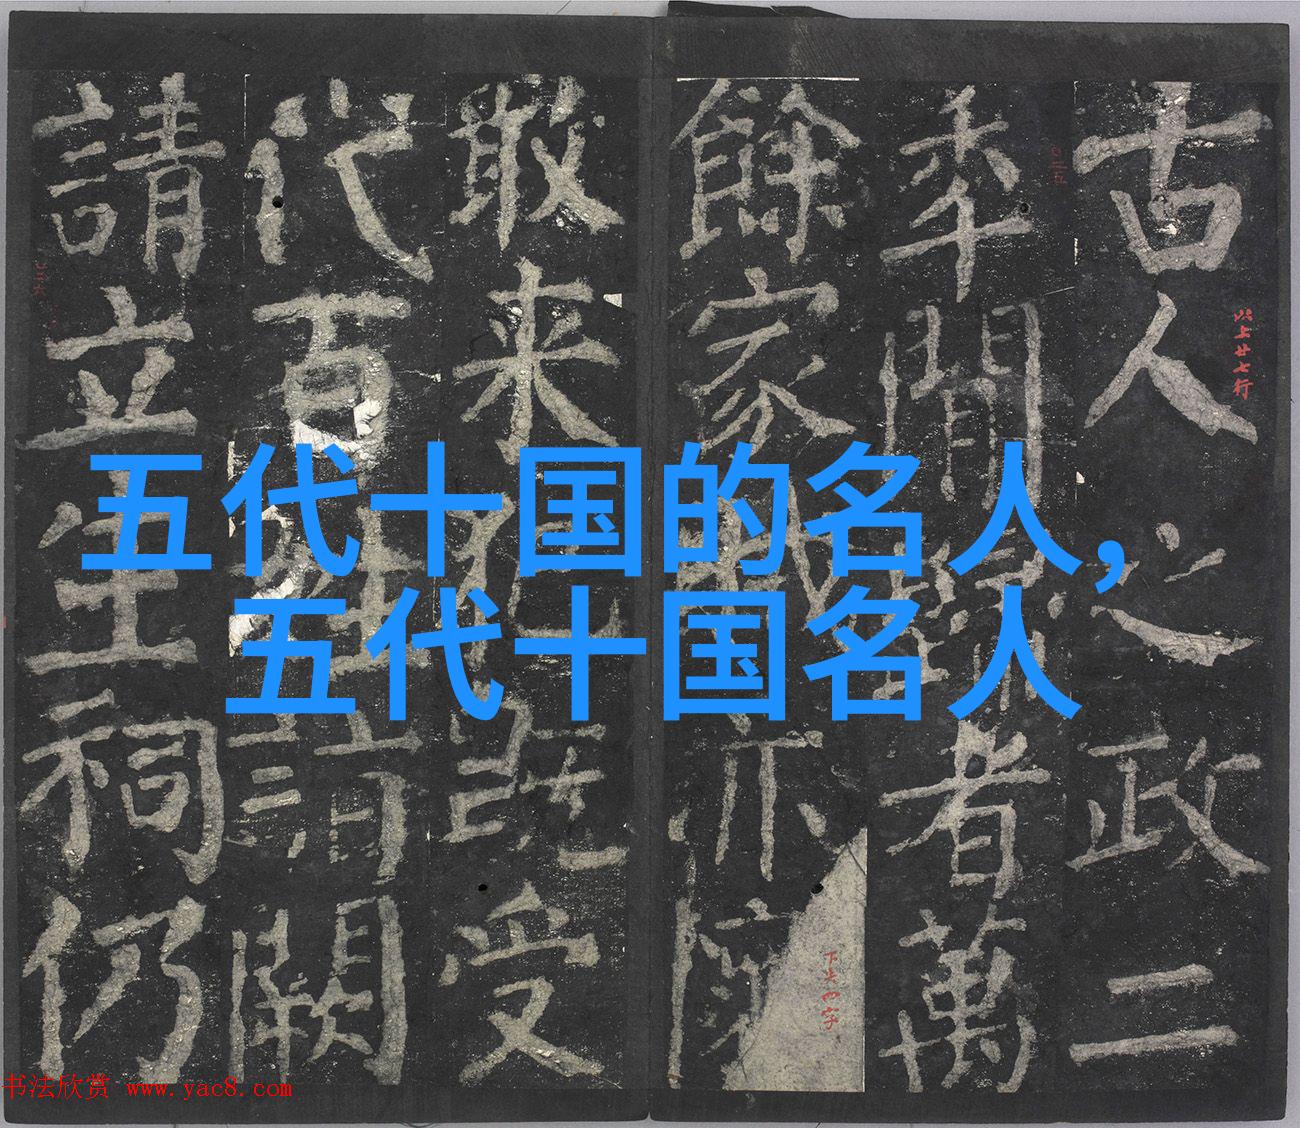 五代十国的名人,
五代十国名人
古人之政二
年閒者萬
餘家亦
敢来既受
代百闕
請立生祠仍
以上廿七行
书法欣赏 www.yac8.com